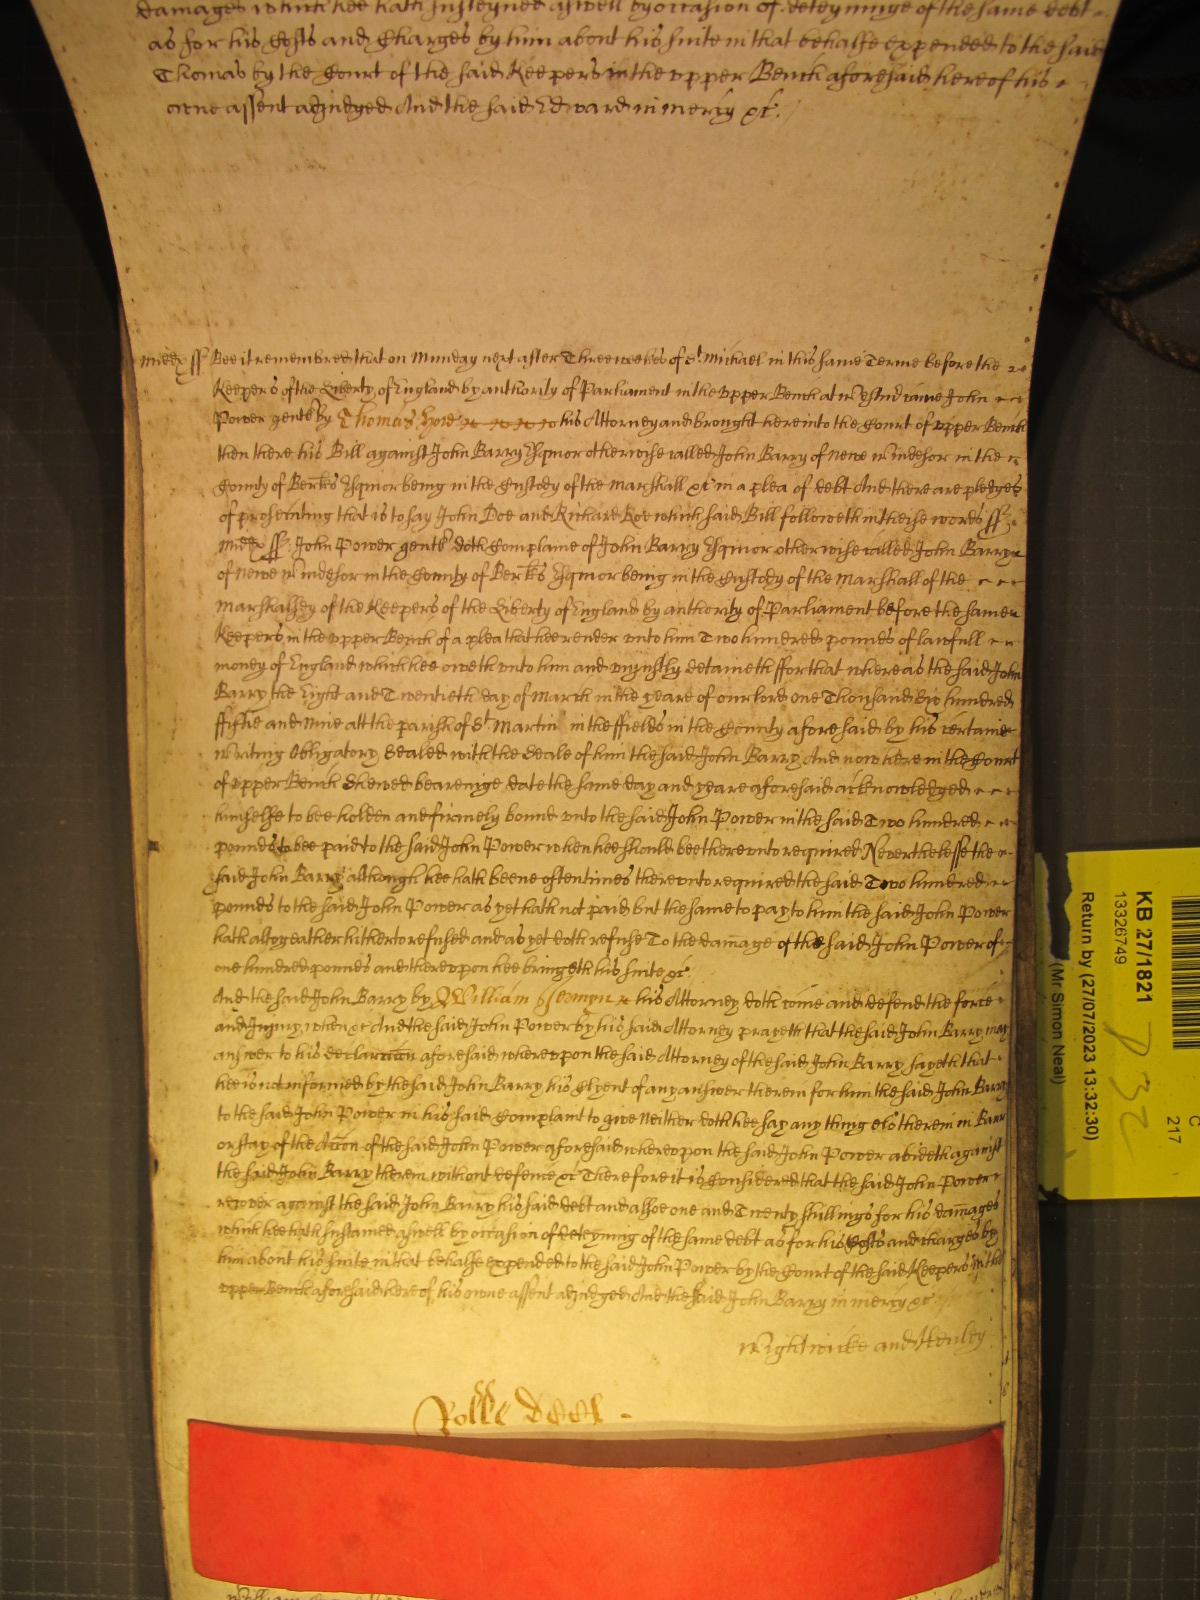 damages which hee hath susteyned aswell by occasion of deteyninge of the same debt
as for his Costs and Charges by him about his suite in that behalfe expended to the said
Thomas by the Court of the said Keepers in the vpper Bench aforesaid here of his
owne assent adjudged And the said Edward in mercy &c.
Middx ss Bee it remembred that on Munday next after Three weekes of St. Michael in this same Terme before the
Keepers of the Liberty of England by authority of Parliament in the vpper Bench at Westmr came John
Power gentl by Thomas Hore his Attorney and brought here into the Court of vpper Bench
then there his Bill against John Barry Esquior otherwise called John Barry of Newe Windesor in the
County of Berks Esquior being in the Custody of the Marshall &c in a plea of debt And there are pledges
of prosecuting that is to say John Doe and Richard Roe which said Bill followeth in theise words ss
Middx ss John Power gentl doth Complaine of John Barry Esquior otherwise called John Barry
of Newe Windesor in the County of Berks Esquior being in the Custody of the Marshall of the
Marshalsey of the Keepers of the Liberty of England by authority of Parliament before the same
Keepers in the vpper Bench of a plea that hee render vnto him Two hundred pounds of lawfull
money of England which hee oweth vnto him and vnjustly detaineth ffor that whereas the said John
Barry the Eight and Twentieth day of March in the yeare of our lord one Thousand Six hundred
ffiftie and Nine att the parish of St Martin in the ffields in the County aforesaid by his certaine
Writing Obligatory Sealed with the Seale of him the said John Barry And now here in the Court
of vpper Bench Shewed bearenige date the same day and yeare aforesaid acknowledged
himselfe to bee holden and firmely bound vnto the said John Power in the said Two hundred
pounds to bee paid to the said John Power when hee should bee therevnto required Neverthelesse the
said John Barry although hee hath beene oftentimes therevnto required the said Two hundred
pounds to the said John Power as yet hath not paid but the same to pay to him the said John Power
hath altogeather hitherto refused and as yet doth refuse To the damage of the said John Power of
one hundred pounds and therevpon hee bringeth his suite &c
And the said John Barry by William Jermyn his Attorney doth come and defend the force
and Injury when &c And the said John Power by his said Attorney prayeth that the said John Barry may
answer to his declaracion aforesaid wherevpon the said Attorney of the said John Barry sayeth that
hee is not informed by the said John Barry his Clyent of any answer therein for him the said John Barry
to the said John Power in his said Complaint to give Neither doth hee say any thing els therein in Barr
or stay of the Accon of the said John Power aforesaid wherevpon the said John Power abideth against
the said John Barry therein without defence &c Therefore it is Considered that the said John Power
recover against the said John Barry his said debt and alsoe one and Twenty shillings for his damages
which hee hath sustained aswell by occasion of deteyning of the same debt as for his Costs and charges by
him about his suite in that behalfe expended to the said John Power by the Court of the said Keepers in the
vpper Bench aforesaid here of his owne assent adjudged And the said John Barry in mercy &c
Wightwicke and Henley
KB 27/1821
13326749
Return by (27/07/2023 13:32:30)
(Mr Simon Neal)
217